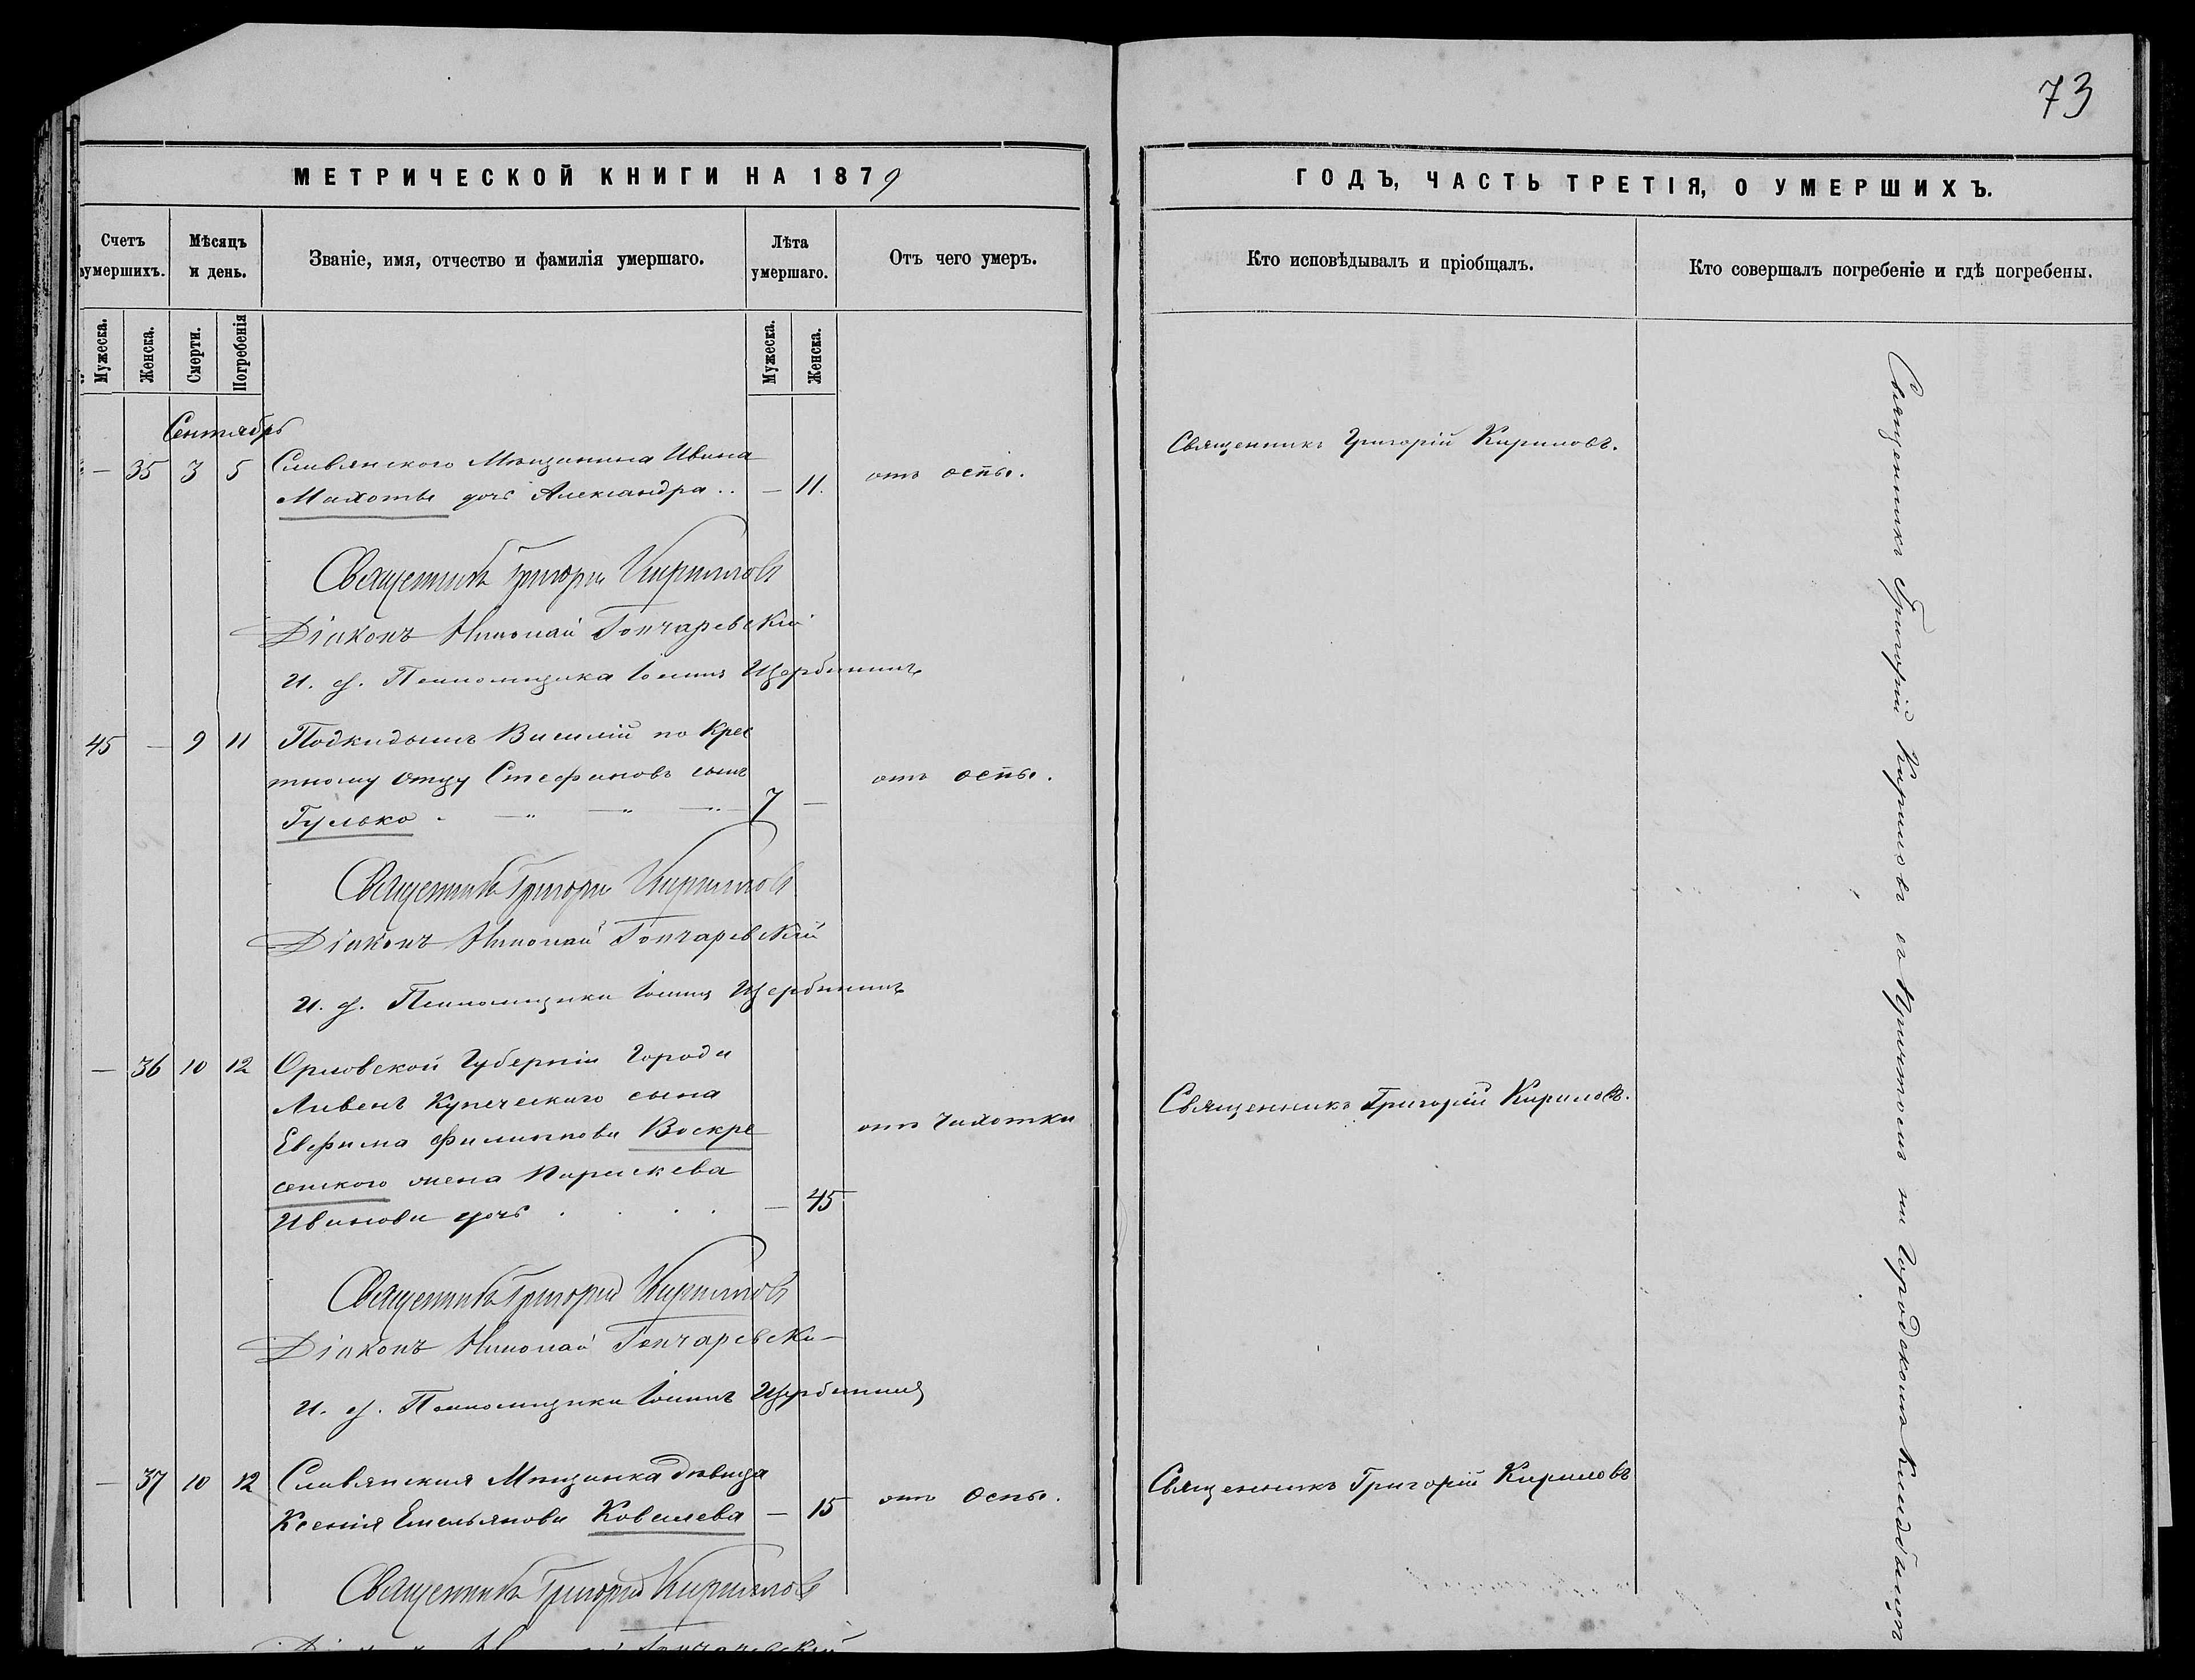 73
МЕТРИЧЕСКОЙ КНИГИ НА 1879
ГОДЪ, ЧАСТЬ ТРЕТІЯ, О УМЕРШИХЪ.
Счетъ умершихъ.
Мѣсяцъ и день.
Званіе, имя, отчество и фамилія умершаго.
Лѣта умершаго.
Отъ чего умеръ.
Кто исповѣдывалъ и пріобщалъ.
Кто совершалъ погребеніе и гдѣ погребены.
Мужеска.
Женска.
Смерти.
Погребенія
Мужеска.
Женска.
Сентябрь
— 35 3 5 Славянского Мѣщанина Ивана
Махоты дочь Александра .. — 11. отъ оспы. Священникъ Григорій Кириловъ.
Священникъ Григорій Кирилловъ
Діаконъ Николай Гончаревскій
И. д. Псаломщика Іоаннъ Щербининъ
45 — 9 11 Подкидышъ Василій по Крес
тному отцу Стефановъ сынъ
Гулько 7 — отъ оспы.
Священникъ Григорій Кирилловъ
Діаконъ Николай Гончаревскій
И. д. Псаломщика Іоаннъ Щербининъ
— 36 10 12 Орловской Губерніи Города
Ливенъ Купеческаго сына
Евфима Филиппова Воскре
сенскаго жена Параскева
Иванова дочь . . . . — 45 отъ чахотки Священникъ Григорій Кириловъ.
Священникъ Григорій Кирилловъ
Діаконъ Николай Гончаревскій
И. д. Псаломщика Іоаннъ Щербининъ
— 37 10 12 Славянская Мѣщанка дѣвица
Ксенія Емельянова Ковалева — 15 отъ Оспы. Священникъ Григорій Кириловъ
Священникъ Григорій Кирилловъ
Діаконъ Николай Гончаревскій
Священникъ Григорій Кириловъ съ Причтомъ на Городскомъ Кладбищѣ